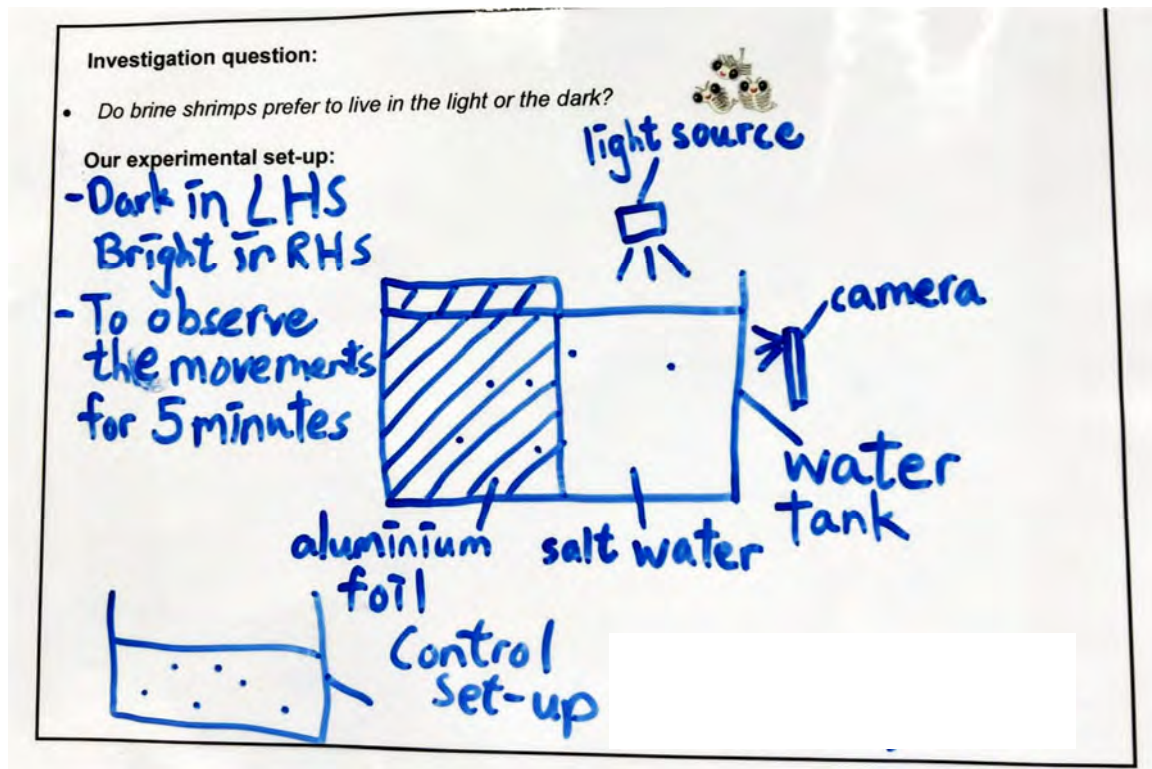 Investigation question:
• Do brine shrimps prefer to live in the light or the dark?
Our experimental set-up:
-Dark in LHS
Bright in RHS
- To observe
the movements
for 5 minutes
light source
camera
water
tank
aluminium
foil
salt water
Control
set-up